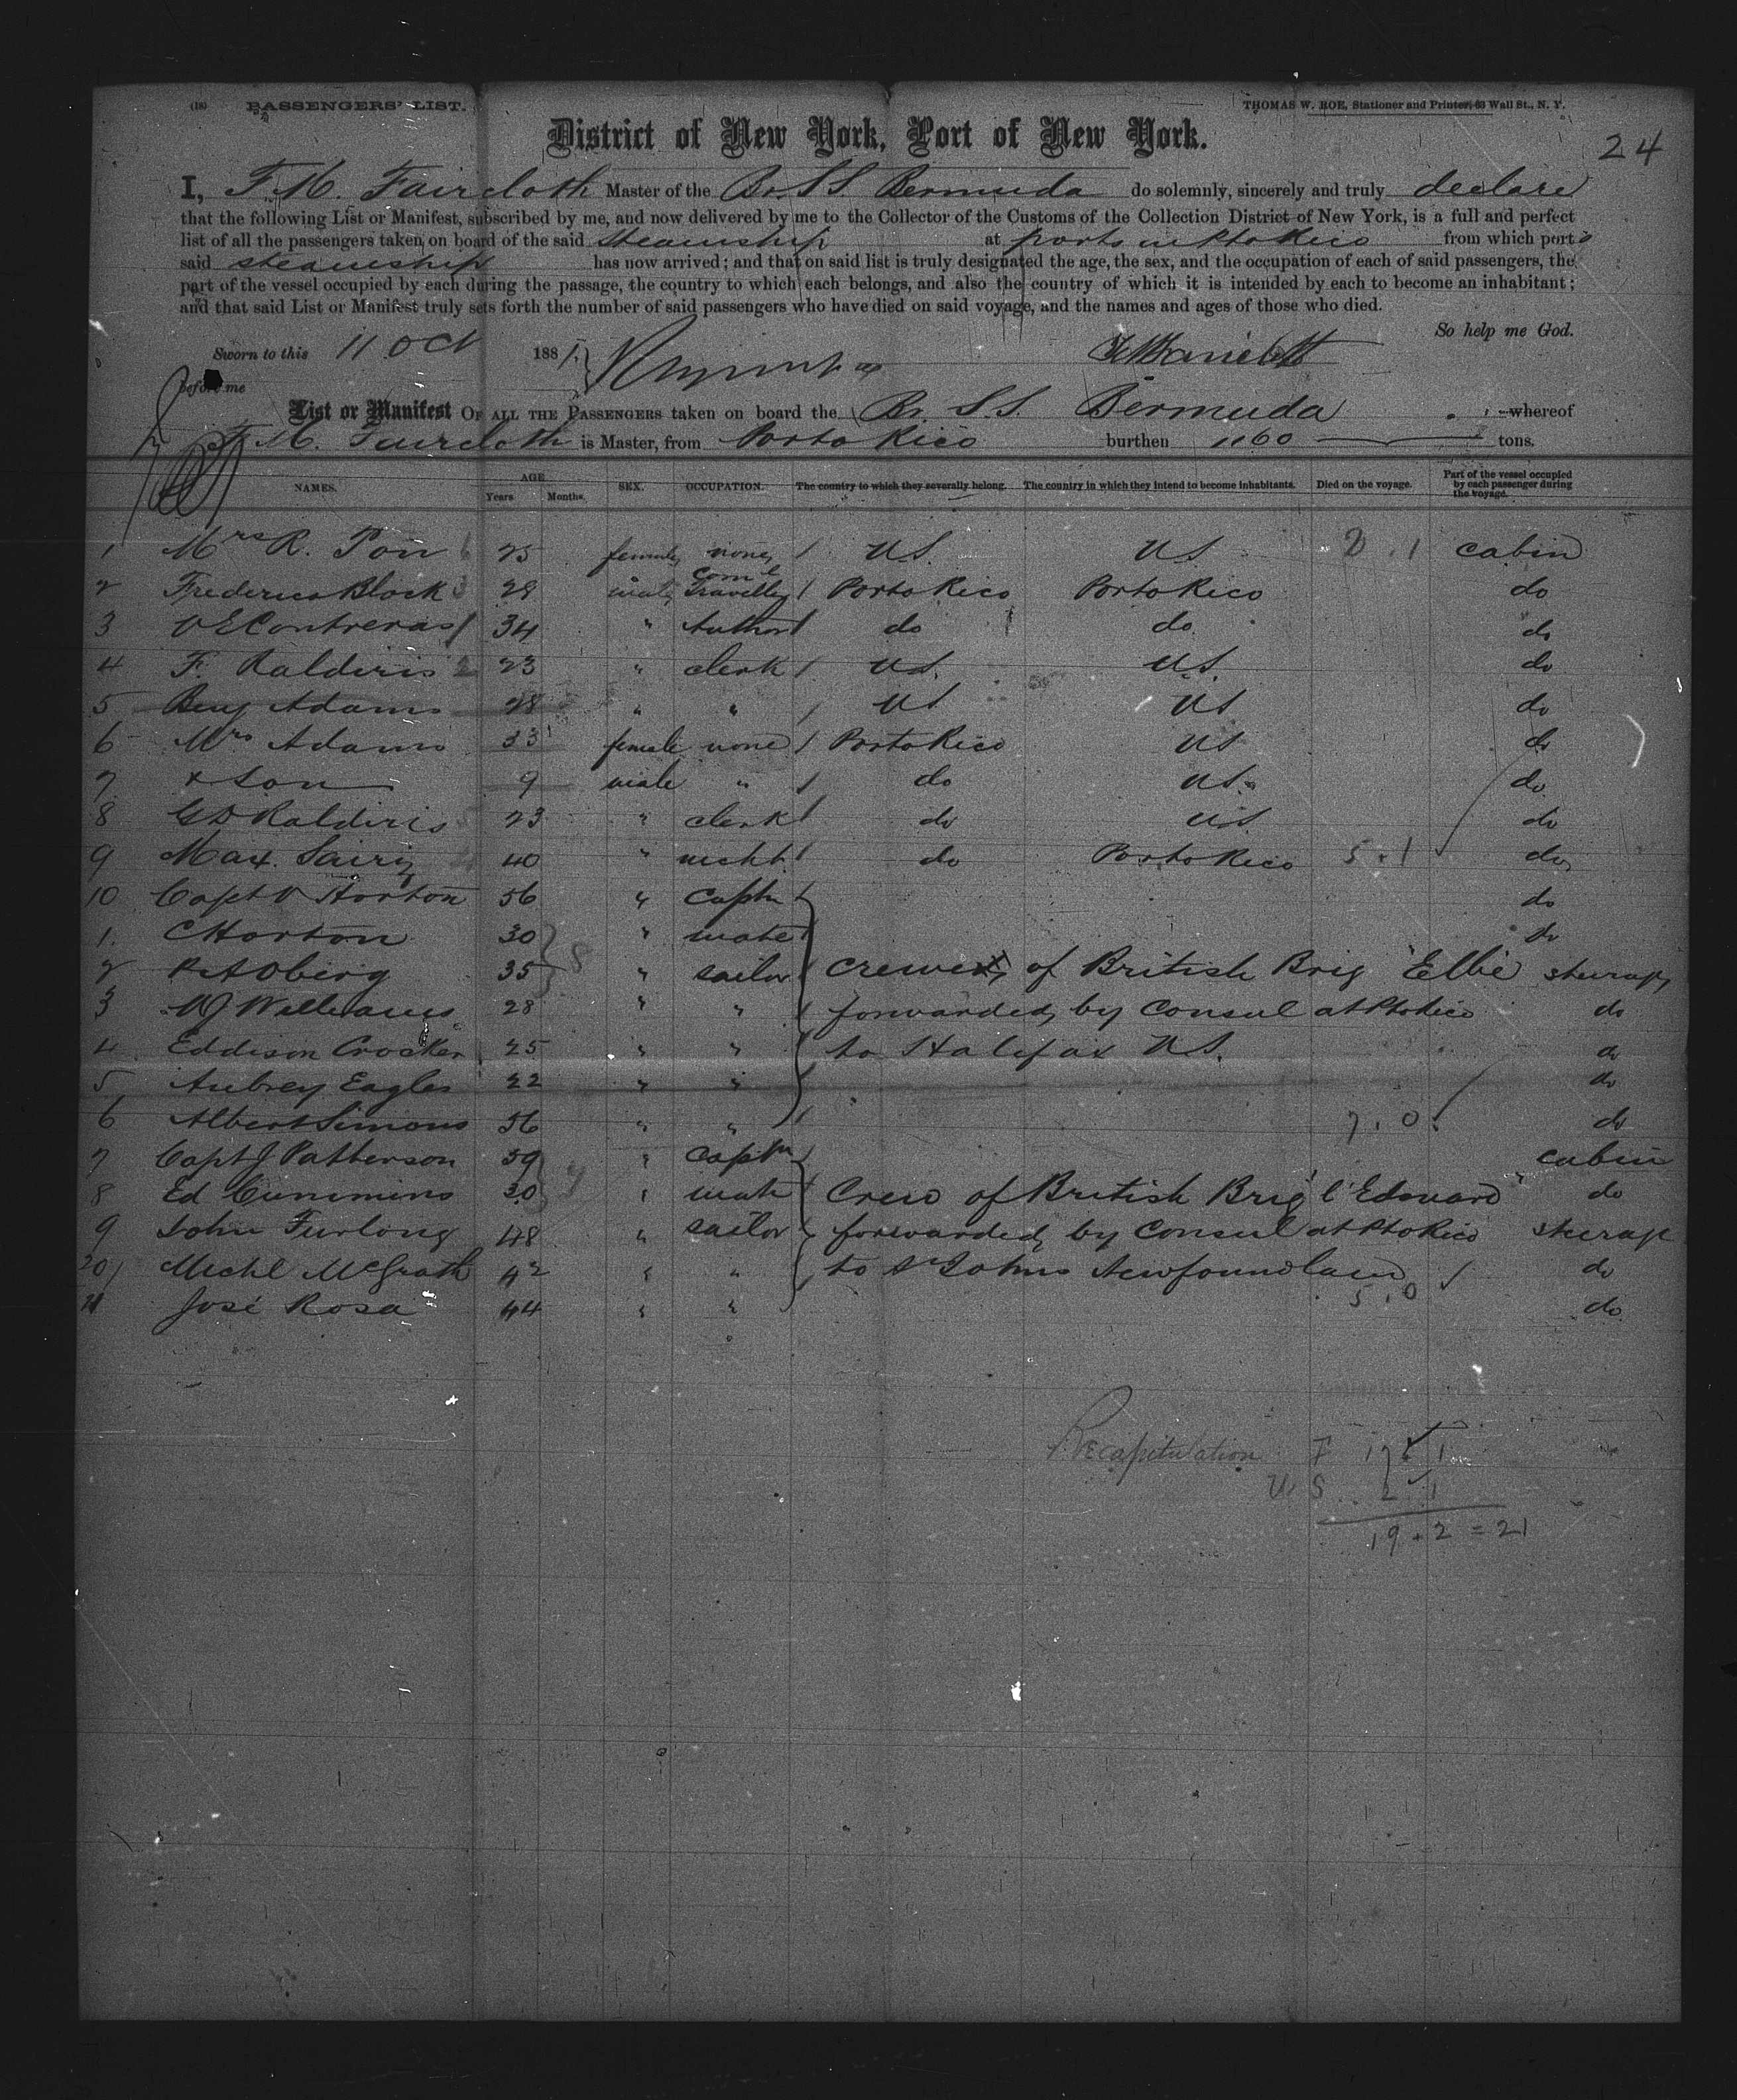 (18) PASSENGERS' LIST. THOMAS W. ROE, Stationer and Printer, 63 Wall St., N. Y.
24
District of New York, Port of New York.
I, F. M. Faircloth Master of the Br. S S Bermuda do solemnly, sincerely and truly declare
that the following List or Manifest, subscribed by me, and now delivered by me to the Collector of the Customs of the Collection District of New York, is a full and perfect
list of all the passengers taken on board of the said steamship at ports in Pto Rico from which ports
said steamship has now arrived; and that on said list is truly designated the age, the sex, and the occupation of each of said passengers, the
part of the vessel occupied by each during the passage, the country to which each belongs, and also the country of which it is intended by each to become an inhabitant;
and that said List or Manifest truly sets forth the number of said passengers who have died on said voyage, and the names and ages of those who died.
So help me God.
Sworn to this 11 Oct 1881
before me
List or Manifest OF ALL THE PASSENGERS taken on board the Br. S.S. Bermuda whereof
F. M. Faircloth is Master, from Porto Rico burthen 1160 tons.
NAMES. AGE Years Months. SEX. OCCUPATION. The country to which they severally belong. The country in which they intend to become inhabitants. Died on the voyage. Part of the vessel occupied by each passenger during the voyage.
1 Mrs R. Pon 25 female none U.S. U.S 2.1 cabin
2 Frederico Block 28 male Coml Travellg Porto Rico Porto Rico do
3 V E Contreras 34 " Author do do do
4 F. Kaldiris 23 " clerk U.S. U.S. do
5 Benj Adams 28 " " US US do
6 Mrs Adams 33 female none Porto Rico US do
7 & Son 9 male " do US. do
8 G D Kaldiris 23 " clerk do US do
9 Max. 40 " mcht do Porto Rico 5.1 do
10 Capt V Horton 56 " Captn do
1. C Horton 30 " mate do
2 R A Oberg 35 " sailor crew of British Brig "Ellie" steerage
3 W J Williams 28 " " forwarded by Consul at Pto Rico do
4 Eddison Crocker 25 " " to Halifax N.S. do
5 Aubrey Eagles 22 " " do
6 Albert Simons 56 " " 7.0 do
7 Capt J Patterson 59 " Captn cabin
8 Ed Cummins 30 " mate Crew of British Brig "l'Edouard" do
9 John Furlong 48 " sailor forwarded by Consul at Pto Rico steerage
20 Michl McGrath 42 " " to St Johns Newfoundland do
21 José Rosa 44 " " 5.0 do
Recapitulation F 17 1
U S 2 1
19 + 2 = 21